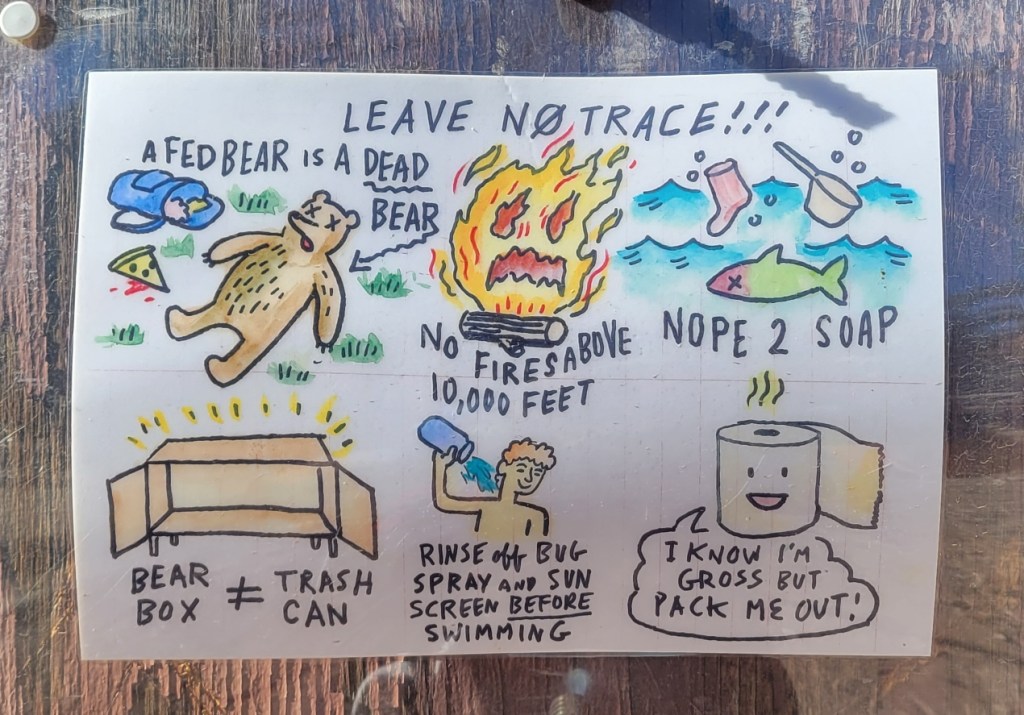 LEAVE NØ TRACE!!!
A FED BEAR IS A DEAD
BEAR
NO FIRES ABOVE
10,000 FEET
NOPE 2 SOAP
BEAR
BOX
≠
TRASH
CAN
RINSE off BUG
SPRAY AND SUN
SCREEN BEFORE
SWIMMING
I KNOW I'M
GROSS BUT
PACK ME OUT!